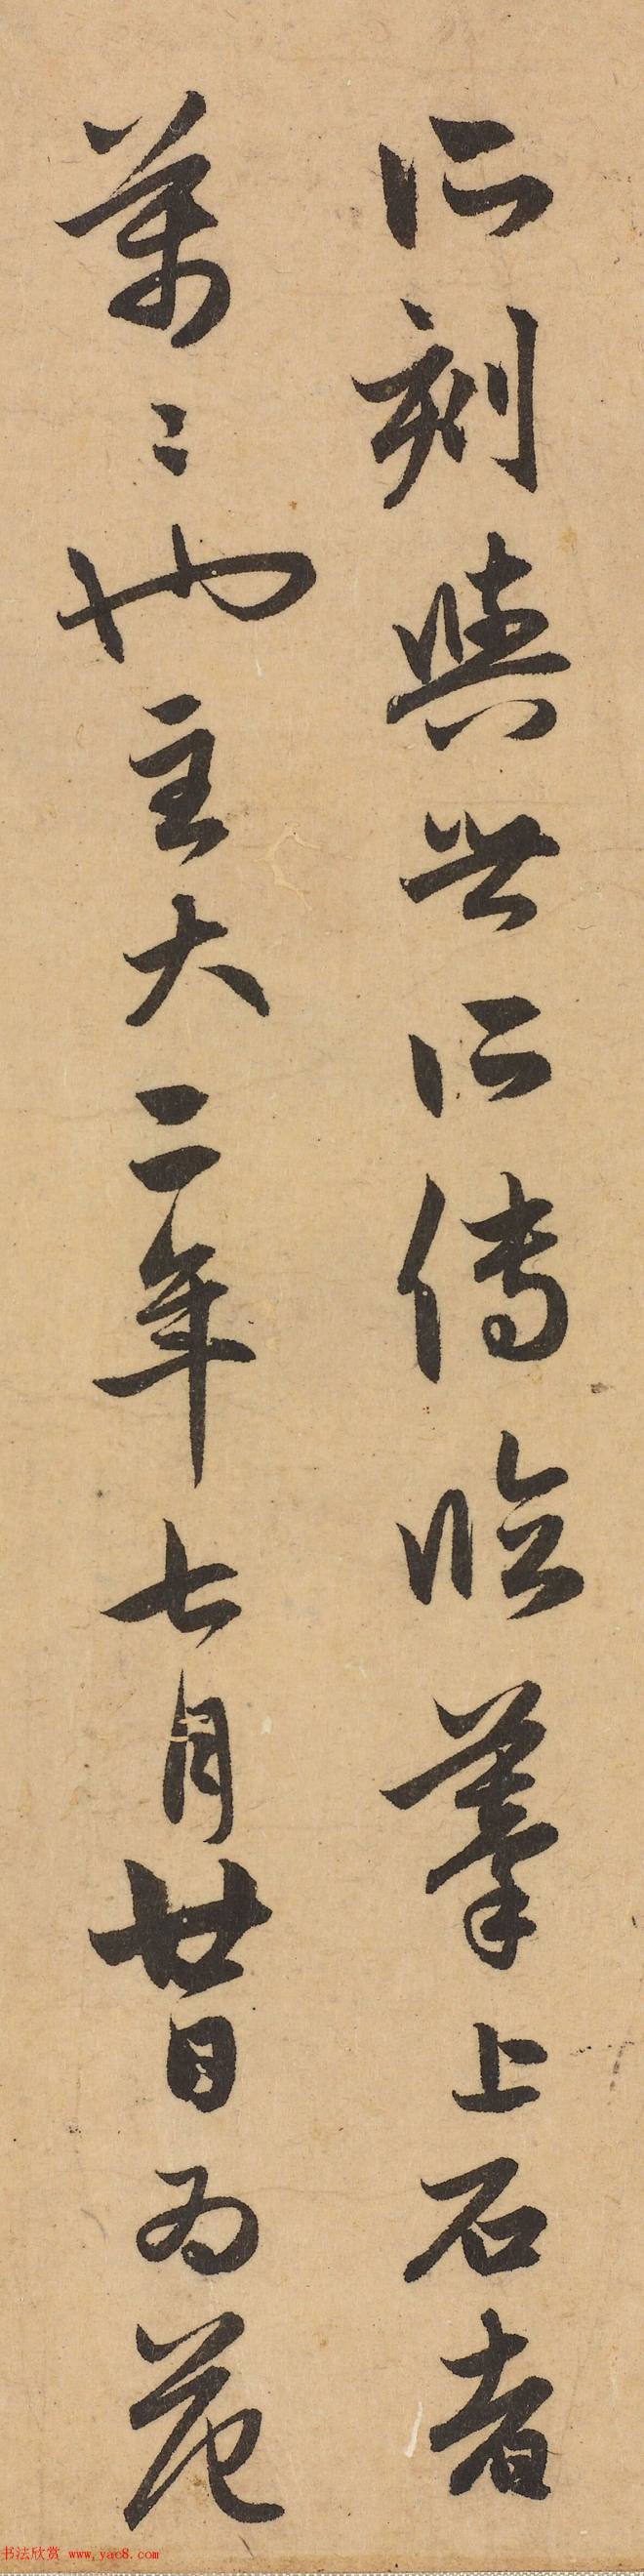 所刻與世所傳臨摹上石者
萬々也至大二年七月廿日為范
书法欣赏 www.yac8.com